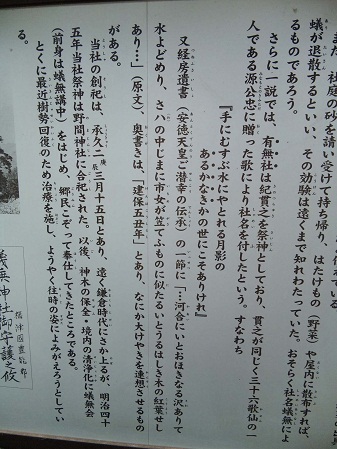 また、社庭の砂を請い受けて持ち帰り、はたけもの（野菜）や屋内に散布すれば、
蟻が退散するといい、その効験は遠くまで知れわたっていた。おそらく社名蟻無によ
るものであろう。
さらに一説では、有無社は紀貫之を祭神としており、貫之が同じく三十六歌仙の一
人である源公忠に贈った歌により社名を付したという。すなわち
『手にむすぶ水にやどれる月影の
あるかなきかの世にこそありけれ』
又経房遺書（安徳天皇〝潜幸の伝承〟）の一節に「…河合にいとおほきなる沢ありて
水よどめり、さハの中じまに市女が笠てふものに似たるいとうるはしき木の紅葉せし
あり…」（原文）、奥書きは、「建保五丑年」とあり、なにか大けやきを連想させるもの
がある。
当社の創祀は、承久二年庚辰三月十五日とあり、遠く鎌倉時代にさか上るが、明治四十
五年当社祭神は野間神社に合祀された。以後、神木の保全・境内の清浄化に蟻無会
（前身は蟻無講中）をはじめ、郷民こぞって奉仕してきたところである。
とくに最近樹勢回復のため治療を施し、ようやく往時の姿によみがえろうとしてい
る。
摂津國豊能郡
蟻無神社御守護之攸